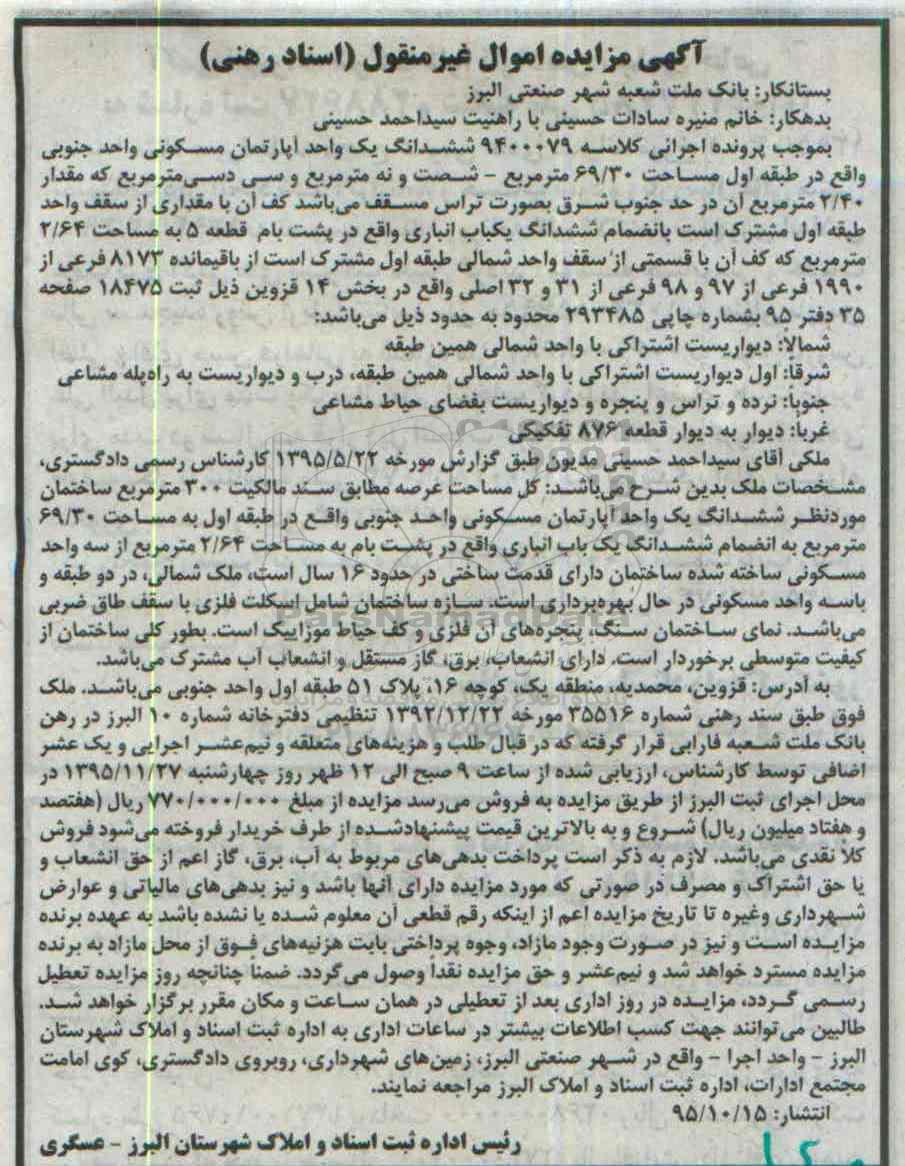 آگهی مزایده اموال غیرمنقول (اسناد رهنی)
بستانکار: بانک ملت شعبه شهر صنعتی البرز
بدهکار: خانم منیره سادات حسینی با راهنیت سیداحمد حسینی
بموجب پرونده اجرائی کلاسه ۹۴۰۰۰۷۹ ششدانگ یک واحد آپارتمان مسکونی واحد جنوبی
واقع در طبقه اول مساحت ۶۹/۳۰ مترمربع - شصت و نه مترمربع و سی دسی‌مترمربع که مقدار
۲/۴۰ مترمربع آن در حد جنوب شرق بصورت تراس مسقف می‌باشد کف آن با مقداری از سقف واحد
طبقه اول مشترک است بانضمام ششدانگ یکباب انباری واقع در پشت بام قطعه ۵ به مساحت ۲/۶۴
مترمربع که کف آن با قسمتی از سقف واحد شمالی طبقه اول مشترک است از باقیمانده ۸۱۷۳ فرعی از
۱۹۹۰ فرعی از ۹۷ و ۹۸ فرعی از ۳۱ و ۳۲ اصلی واقع در بخش ۱۴ قزوین ذیل ثبت ۱۸۴۷۵ صفحه
۳۵ دفتر ۹۵ بشماره چاپی ۲۹۳۴۸۵ محدود به حدود ذیل می‌باشد:
شمالاً: دیواریست اشتراکی با واحد شمالی همین طبقه
شرقاً: اول دیواریست اشتراکی با واحد شمالی همین طبقه، درب و دیواریست به راه‌پله مشاعی
جنوباً: نرده و تراس و پنجره و دیواریست بفضای حیاط مشاعی
غرباً: دیوار به دیوار قطعه ۸۷۶ تفکیکی
ملکی آقای سیداحمد حسینی مدیون طبق گزارش مورخه ۱۳۹۵/۵/۲۲ کارشناس رسمی دادگستری،
مشخصات ملک بدین شرح می‌باشد: کل مساحت عرصه مطابق سند مالکیت ۳۰۰ مترمربع ساختمان
موردنظر ششدانگ یک واحد آپارتمان مسکونی واحد جنوبی واقع در طبقه اول به مساحت ۶۹/۳۰
مترمربع به انضمام ششدانگ یک باب انباری واقع در پشت بام به مساحت ۲/۶۴ مترمربع از سه واحد
مسکونی ساخته شده ساختمان دارای قدمت ساختی در حدود ۱۶ سال است، ملک شمالی، در دو طبقه و
باسه واحد مسکونی در حال بهره‌برداری است. سازه ساختمان شامل اسکلت فلزی با سقف طاق ضربی
می‌باشد. نمای ساختمان سنگ، پنجره‌های آن فلزی و کف حیاط موزاییک است. بطور کلی ساختمان از
کیفیت متوسطی برخوردار است. دارای انشعاب، برق، گاز مستقل و انشعاب آب مشترک می‌باشد.
به آدرس: قزوین، محمدیه، منطقه یک، کوچه ۱۶، پلاک ۵۱ طبقه اول واحد جنوبی می‌باشد. ملک
فوق طبق سند رهنی شماره ۳۵۵۱۶ مورخه ۱۳۹۲/۱۲/۲۲ تنظیمی دفترخانه شماره ۱۰ البرز در رهن
بانک ملت شعبه فارابی قرار گرفته که در قبال طلب و هزینه‌های متعلقه و نیم‌عشر اجرایی و یک عشر
اضافی توسط کارشناس، ارزیابی شده از ساعت ۹ صبح الی ۱۲ ظهر روز چهارشنبه ۱۳۹۵/۱۱/۲۷ در
محل اجرای ثبت البرز از طریق مزایده به فروش می‌رسد مزایده از مبلغ ۷۷۰/۰۰۰/۰۰۰ ریال (هفتصد
و هفتاد میلیون ریال) شروع و به بالاترین قیمت پیشنهادشده از طرف خریدار فروخته می‌شود فروش
کلاً نقدی می‌باشد. لازم به ذکر است پرداخت بدهی‌های مربوط به آب، برق، گاز اعم از حق انشعاب و
یا حق اشتراک و مصرف در صورتی که مورد مزایده دارای آنها باشد و نیز بدهی‌های مالیاتی و عوارض
شهرداری وغیره تا تاریخ مزایده اعم از اینکه رقم قطعی آن معلوم شده یا نشده باشد به عهده برنده
مزایده است و نیز در صورت وجود مازاد، وجوه پرداختی بابت هزنیه‌های فوق از محل مازاد به برنده
مزایده مسترد خواهد شد و نیم‌عشر و حق مزایده نقداً وصول می‌گردد. ضمناً چنانچه روز مزایده تعطیل
رسمی گردد، مزایده در روز اداری بعد از تعطیلی در همان ساعت و مکان مقرر برگزار خواهد شد.
طالبین می‌توانند جهت کسب اطلاعات بیشتر در ساعات اداری به اداره ثبت اسناد و املاک شهرستان
البرز - واحد اجرا - واقع در شهر صنعتی البرز، زمین‌های شهرداری، روبروی دادگستری، کوی امامت
مجتمع ادارات، اداره ثبت اسناد و املاک البرز مراجعه نمایند.
انتشار: ۹۵/۱۰/۱۵
رئیس اداره ثبت اسناد و املاک شهرستان البرز - عسگری